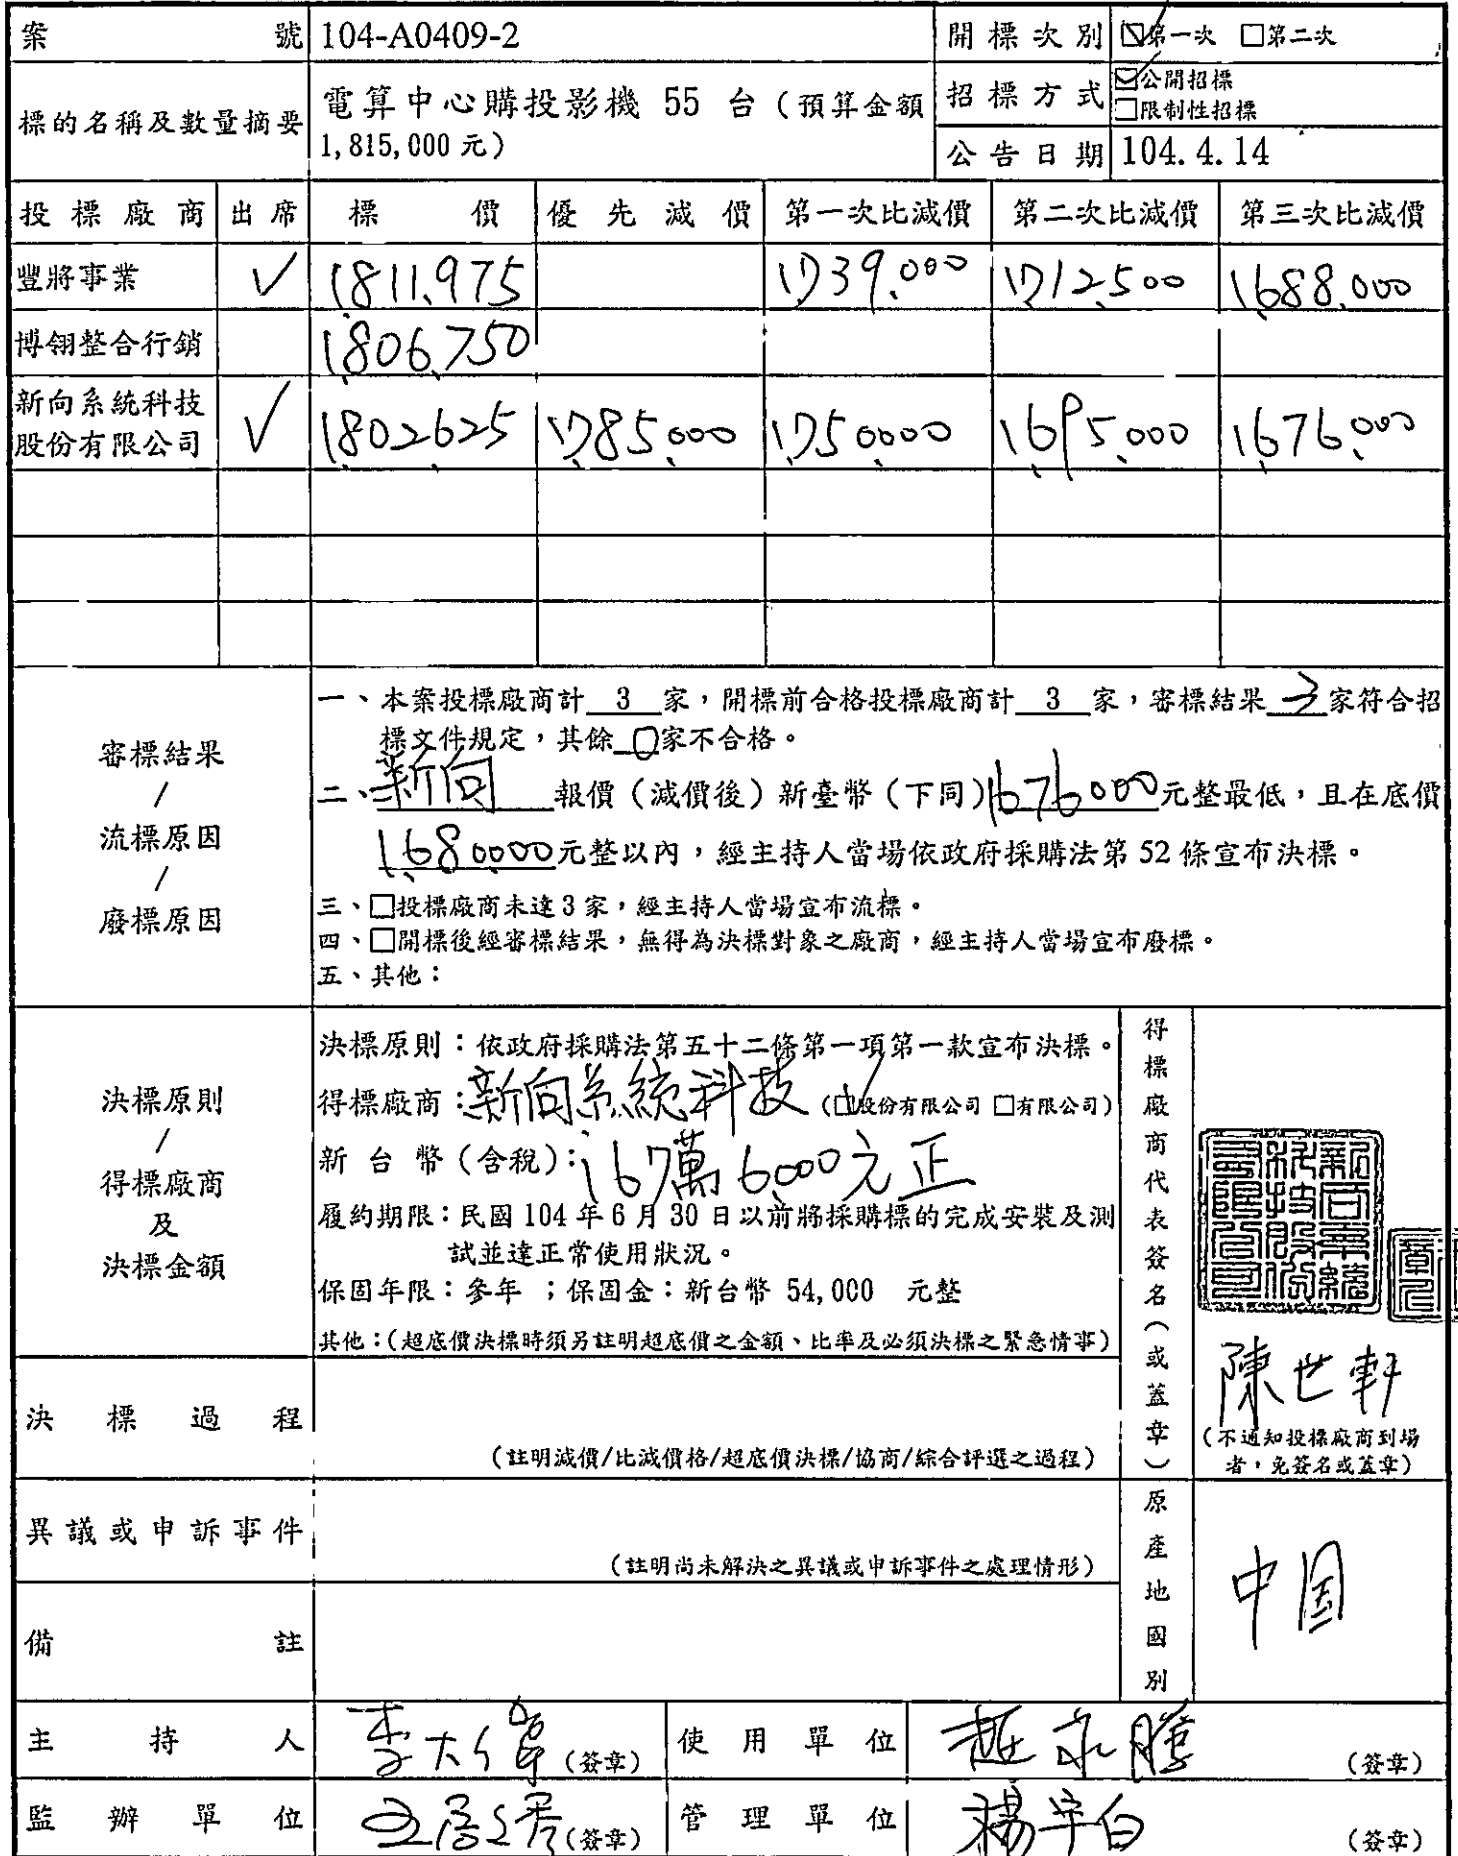 案號 104-A0409-2 開標次別 ☑第一次 □第二次
標的名稱及數量摘要 電算中心購投影機 55 台（預算金額
1,815,000 元）
招標方式 ☑公開招標
□限制性招標
公告日期 104.4.14
投標廠商 出席 標價 優先減價 第一次比減價 第二次比減價 第三次比減價
豐將事業 ✓ 1,811,975 1,739,000 1,712,500 1,688,000
博翎整合行銷 1,806,750
新向系統科技
股份有限公司 ✓ 1,802,625 1,785,000 1,750,000 1,695,000 1,676,000
審標結果
/
流標原因
/
廢標原因
一、本案投標廠商計 3 家，開標前合格投標廠商計 3 家，審標結果 3 家符合招
標文件規定，其餘 0 家不合格。
二、新向 報價（減價後）新臺幣（下同）1,676,000元整最低，且在底價
1,680,000元整以內，經主持人當場依政府採購法第 52 條宣布決標。
三、□投標廠商未達 3 家，經主持人當場宣布流標。
四、□開標後經審標結果，無得為決標對象之廠商，經主持人當場宣布廢標。
五、其他：
決標原則
/
得標廠商
及
決標金額
決標原則：依政府採購法第五十二條第一項第一款宣布決標。
得標廠商：新向系統科技（☑股份有限公司 □有限公司）
新台幣（含稅）：167萬6,000元正
履約期限：民國 104 年 6 月 30 日以前將採購標的完成安裝及測
試並達正常使用狀況。
保固年限：參年 ；保固金：新台幣 54,000 元整
其他：（超底價決標時須另註明超底價之金額、比率及必須決標之緊急情事）
得標廠商代表簽名（或蓋章）
新向系統科技股份有限公司
陳世軒
（不通知投標廠商到場
者，免簽名或蓋章）
決標過程
（註明減價/比減價格/超底價決標/協商/綜合評選之過程）
異議或申訴事件
（註明尚未解決之異議或申訴事件之處理情形）
原產地國別 中国
備註
主持人 李大偉（簽章） 使用單位（簽章）
監辦單位（簽章） 管理單位 楊宇白（簽章）